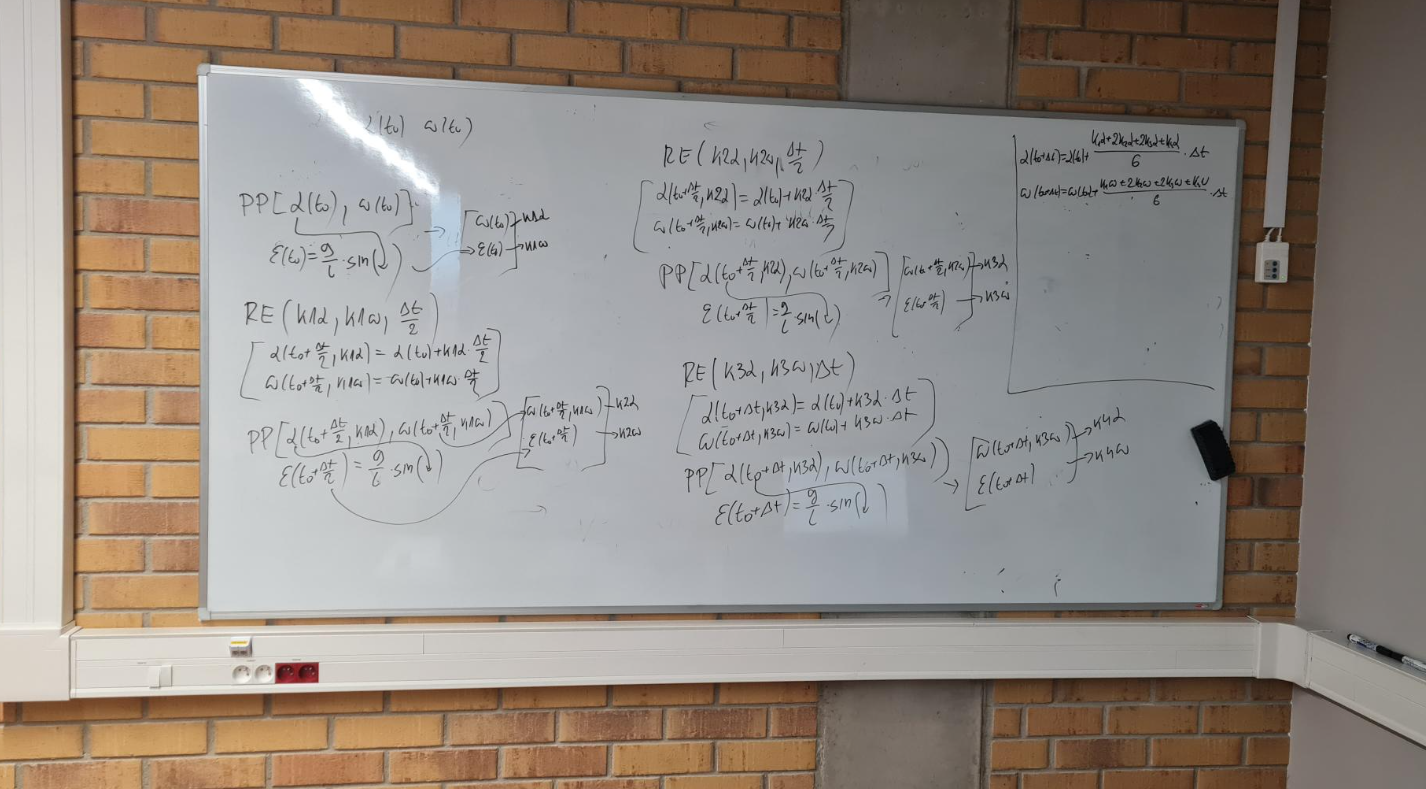 α(t₀) ω(t₀)
PP[α(t₀), ω(t₀)] → [ω(t₀) → k1α
ε(t₀)=g/l·sin(↓) ε(t₀) → k1ω
RE(k1α, k1ω, Δt/2)
α(t₀+Δt/2, k1α) = α(t₀)+k1α·Δt/2
ω(t₀+Δt/2, k1ω) = ω(t₀)+k1ω·Δt/2
PP[α(t₀+Δt/2, k1α), ω(t₀+Δt/2, k1ω)] [ω(t₀+Δt/2, k1ω) → k2α
ε(t₀+Δt/2) = g/l·sin(↓) ε(t₀+Δt/2) → k2ω
RE(k2α, k2ω, Δt/2)
α(t₀+Δt/2, k2α) = α(t₀)+k2α·Δt/2
ω(t₀+Δt/2, k2ω) = ω(t₀)+k2ω·Δt/2
PP[α(t₀+Δt/2, k2α), ω(t₀+Δt/2, k2ω)] → [ω(t₀+Δt/2, k2ω) → k3α
ε(t₀+Δt/2) = g/l·sin(↓) ε(t₀+Δt/2) → k3ω
RE(k3α, k3ω, Δt)
α(t₀+Δt, k3α) = α(t₀)+k3α·Δt
ω(t₀+Δt, k3ω) = ω(t₀)+k3ω·Δt
PP[α(t₀+Δt, k3α), ω(t₀+Δt, k3ω)] → [ω(t₀+Δt, k3ω) → k4α
ε(t₀+Δt) = g/l·sin(↓) ε(t₀+Δt) → k4ω
α(t₀+Δt)=α(t₀)+(k₁α+2k₂α+2k₃α+k₄α)/6·Δt
ω(t₀+Δt)=ω(t₀)+(k₁ω+2k₂ω+2k₃ω+k₄ω)/6·Δt